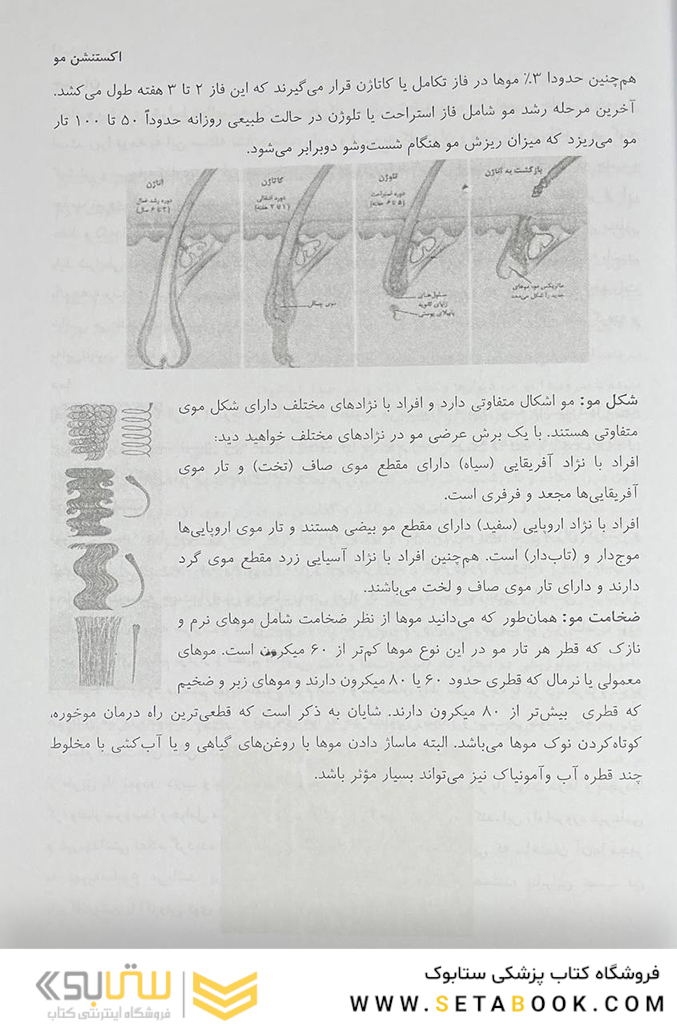 اکستنشن مو
هم‌چنین حدودا ۳٪ موها در فاز تکامل یا کاتاژن قرار می‌گیرند که این فاز ۲ تا ۳ هفته طول می‌کشد.
آخرین مرحله رشد مو شامل فاز استراحت یا تلوژن در حالت طبیعی روزانه حدوداً ۵۰ تا ۱۰۰ تار
مو می‌ریزد که میزان ریزش مو هنگام شست‌وشو دوبرابر می‌شود.
بازگشت به آناژن
ماتریکس مو، موهای
جدید را شکل می‌دهد
تلوژن
دوره استراحت
(۵ تا ۶ هفته)
سلول‌های
زایای ثانویه
پاپیلای پوستی
کاتاژن
دوره انتقالی
(۱ تا ۲ هفته)
موی چماقی
آناژن
دوره رشد فعال
شکل مو: مو اشکال متفاوتی دارد و افراد با نژادهای مختلف دارای شکل موی
متفاوتی هستند. با یک برش عرضی مو در نژادهای مختلف خواهید دید:
افراد با نژاد آفریقایی (سیاه) دارای مقطع موی صاف (تخت) و تار موی
آفریقایی‌ها مجعد و فرفری است.
افراد با نژاد اروپایی (سفید) دارای مقطع مو بیضی هستند و تار موی اروپایی‌ها
موج‌دار و (تاب‌دار) است. هم‌چنین افراد با نژاد آسیایی زرد مقطع موی گرد
دارند و دارای تار موی صاف و لخت می‌باشند.
ضخامت مو: همان‌طور که می‌دانید موها از نظر ضخامت شامل موهای نرم و
نازک که قطر هر تار مو در این نوع موها کم‌تر از ۶۰ میکرون است. موهای
معمولی یا نرمال که قطری حدود ۶۰ یا ۸۰ میکرون دارند و موهای زبر و ضخیم
که قطری بیش‌تر از ۸۰ میکرون دارند. شایان به ذکر است که قطعی‌ترین راه درمان موخوره،
کوتاه‌کردن نوک موها می‌باشد. البته ماساژ دادن موها با روغن‌های گیاهی و یا آب‌کشی با مخلوط
چند قطره آب وآمونیاک نیز می‌تواند بسیار مؤثر باشد.
فروشگاه کتاب پزشکی ستابوک
WWW.SETABOOK.COM
ستابوک
فروشگاه اینترنتی کتاب